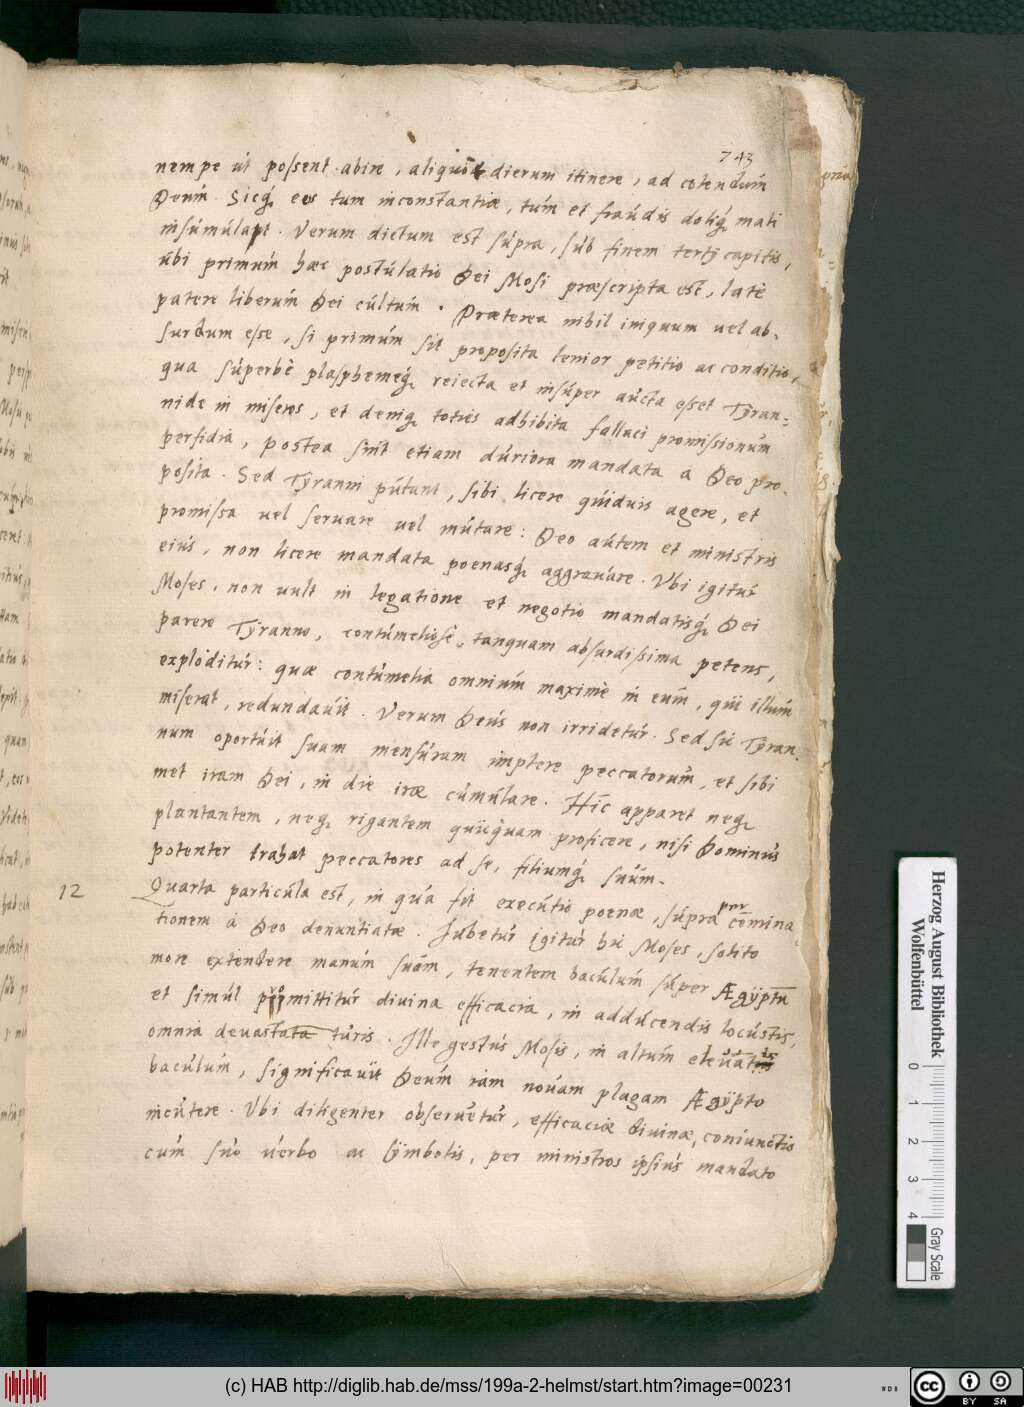 743
nempe ut possent abire, aliquot dierum itinere, ad colendum
Deum. Sicq́ eos tum inconstantiæ, tum et fraudis doliq́ mali
insumulant. Verum dictum est supra, sub finem tertij capitis,
ubi primum hæc postulatio Dei Mosi præscripta est, latè
patere liberum Dei cultum. Præterea nihil iniquum uel ab-
surdum esse, si primum sit proposita lenior petitio ac conditio,
qua superbè blasphemeq́ reiecta et insuper aucta esset Tyran-
nide in miseros, et deniq́ toties adhibita fallaci promissionum
perfidia, postea sint etiam duriora mandata a Deo pro-
posita. Sed Tyranni putant, sibi licere quiduis agere, et
promissa uel seruare uel mutare: Deo autem et ministris
eius, non licere mandata poenasq́ aggrauare. Vbi igitur
Moses, non uult in legatione et negotio mandatisq́ Dei
parere Tyranno, contumeliosè, tanquam absurdissima petens,
exploditur: quæ contumelia omnium maximè in eum, qui illum
miserat, redundauit. Verum Deus non irridetur. Sed sic Tyran-
num oportuit suam mensuram implere peccatorum, et sibi
met iram Dei, in die iræ cumulare. Hic apparet neq́
plantantem, neq́ rigantem quicquam proficere, nisi Dominus
potenter trahat peccatores ad se, filiumq́ suum.
12 Quarta particula est, in qua fit executio poenæ, supra per cōmina-
tionem à Deo denuntiatæ. Iubetur igitur hic Moses, solito
more extendere manum suam, tenentem baculum super Ægyptū
et simul promittitur diuina efficacia, in adducendis locustis,
omnia deuastaturis. Ille gestus Mosis, in altum eleuantis
baculum, significauit Deum iam nouam plagam Ægypto
incutere. Vbi diligenter obseruetur, efficaciæ diuinæ, coniunctis
cum suo uerbo ac symbolis, per ministros ipsius mandato
Herzog August Bibliothek
Wolfenbüttel
0 1 2 3 4
Gray Scale
(c) HAB http://diglib.hab.de/mss/199a-2-helmst/start.htm?image=00231
cc BY SA